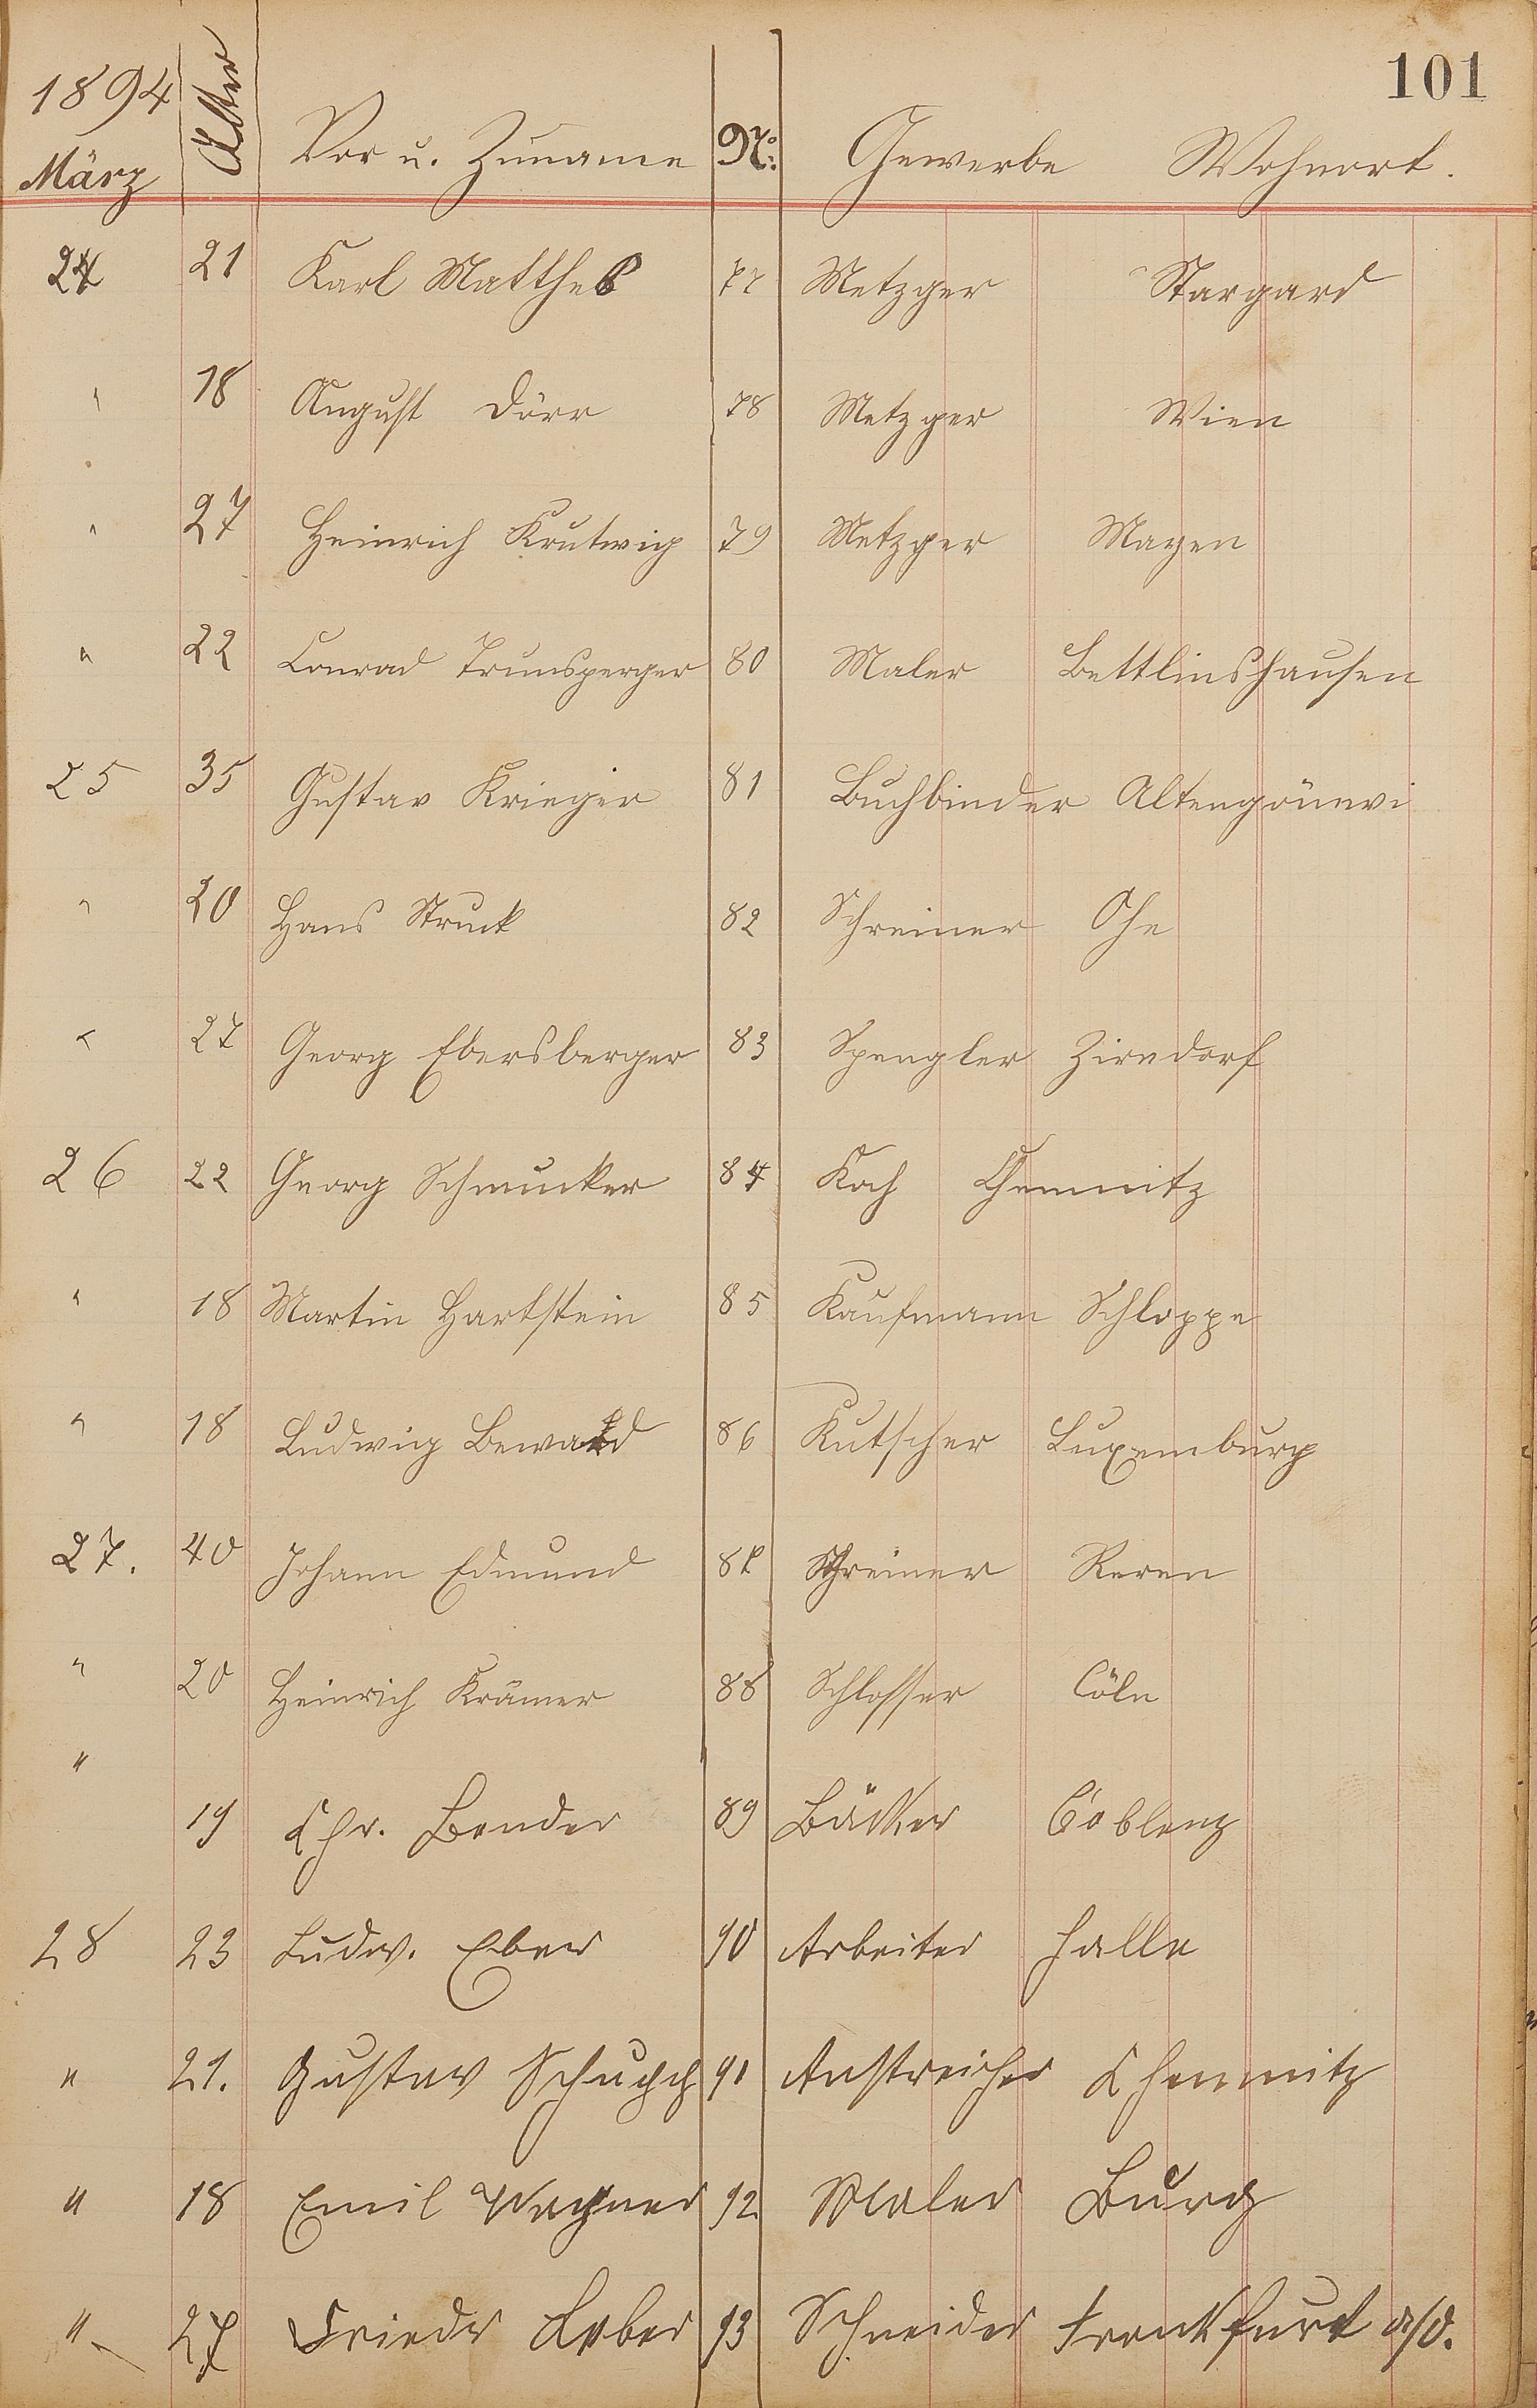 101
1894 März Alter Vor u. Zuname No. Gewerbe Wohnort.
24 21 Karl Matthes 77 Metzger Stargard
" 18 August Dörr 78 Metzger Wien
" 27 Heinrich Krutwig 79 Metzger Mayen
" 22 Conrad Trunsperger 80 Maler Bettlinshausen
25 35 Gustav Krieger 81 Buchbinder
" 20 Hans Struck 82 Schreiner Ohe
" 27 Georg Ebersberger 83 Spengler Zirndorf
26 22 Georg Schmucker 84 Koch Chemnitz
" 18 Martin Hartstein 85 Kaufmann Schloppe
" 18 Ludwig Bewald 86 Kutscher Luxemburg
27. 40 Johann Edmund 87 Schreiner Reren
" 20 Heinrich Krämer 88 Schlosser Cöln
" 19 Chr. Bender 89 Bäcker Coblenz
28 23 Ludw. Eber 90 Arbeiter Halle
" 21. Gustav Schupp 91 Anstreicher Chemnitz
" 18 Emil Wagner 92 Maler Burg
" 27 Friedr 93 Schneider Frankfurt a/O.